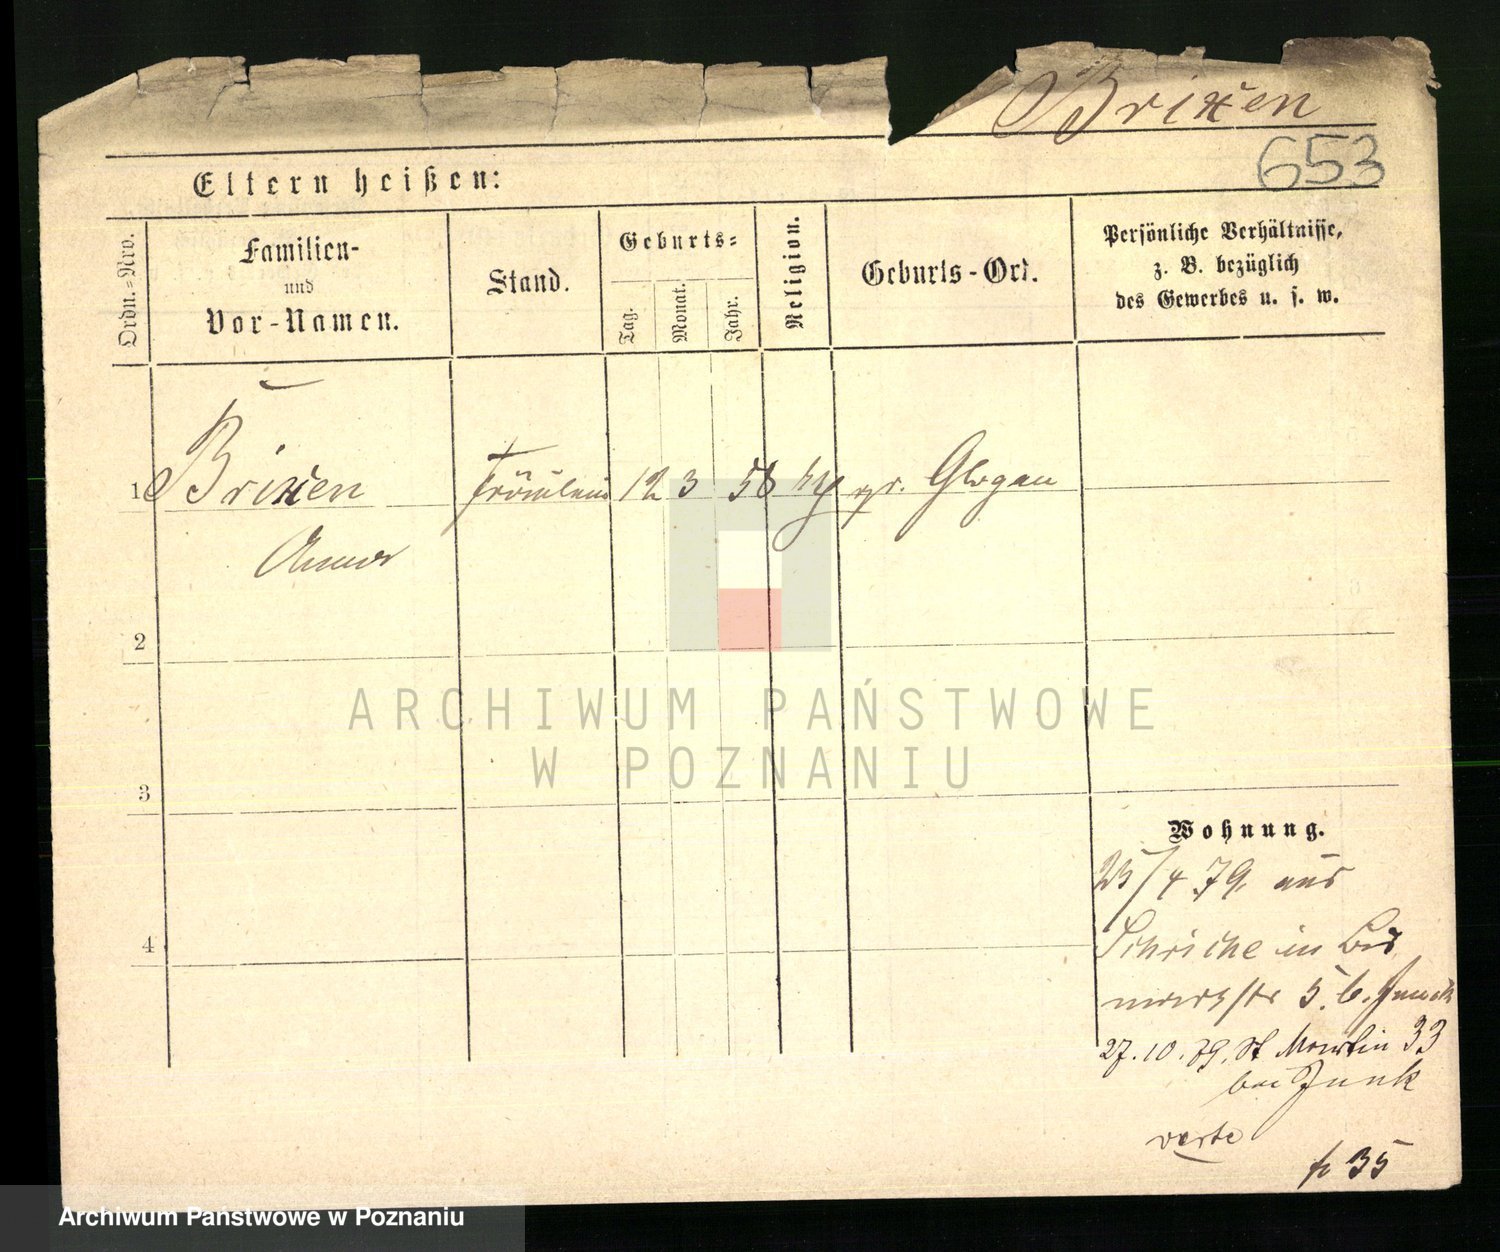 Brixen
653
Eltern heißen:
Ordn.=Nro.
Familien-
und
Vor-Namen.
Stand.
Geburts=
Tag.
Monat.
Jahr.
Religion.
Geburts-Ort.
Persönliche Verhältnisse,
z. B. bezüglich
des Gewerbes u. s. w.
1 Brixen Fräulein 12 3 58 gr. Glogau
Anna
2
3
4
Wohnung.
/4 79. aus
in Bis
markstr 5. b. Junck
27. 10. 79. St Martin 33
bei Junk
verte
35
ARCHIWUM PAŃSTWOWE
W POZNANIU
Archiwum Państwowe w Poznaniu